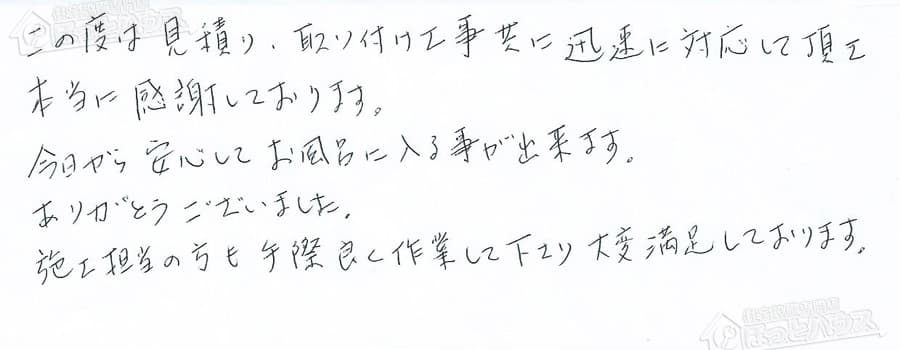 この度は見積り、取り付け工事共に迅速に対応して頂き
本当に感謝しております。
今日から安心してお風呂に入る事が出来ます。
ありがとうございました。
施工担当の方も手際良く作業して下さり大変満足しております。
ほっとハウス